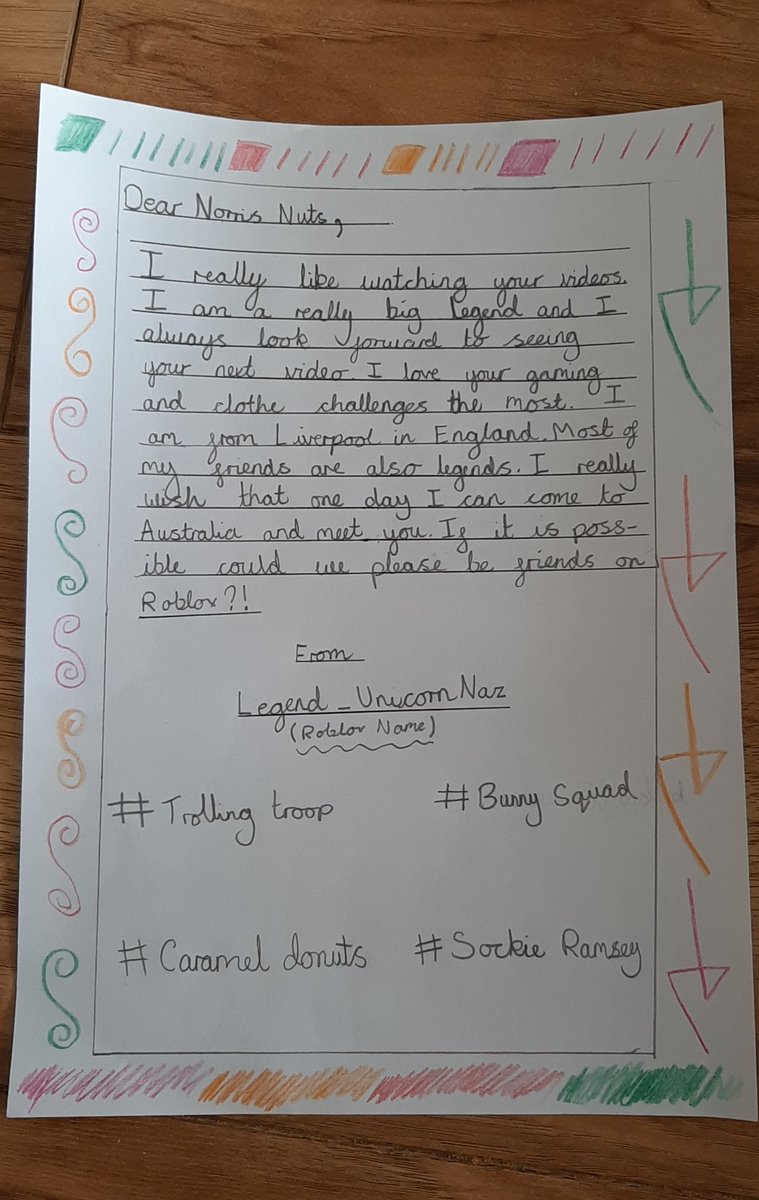 Dear Norris Nuts,
I really like watching your videos.
I am a really big Legend and I
always look forward to seeing
your next video. I love your gaming
and clothe challenges the most. I
am from Liverpool in England. Most of
my friends are also legends. I really
wish that one day I can come to
Australia and meet you. If it is poss-
ible could we please be friends on
Roblox?!
From
Legend_UnicornNaz
(Roblox Name)
# Trolling troop # Bunny Squad
# Caramel donuts # Sockie Ramsey